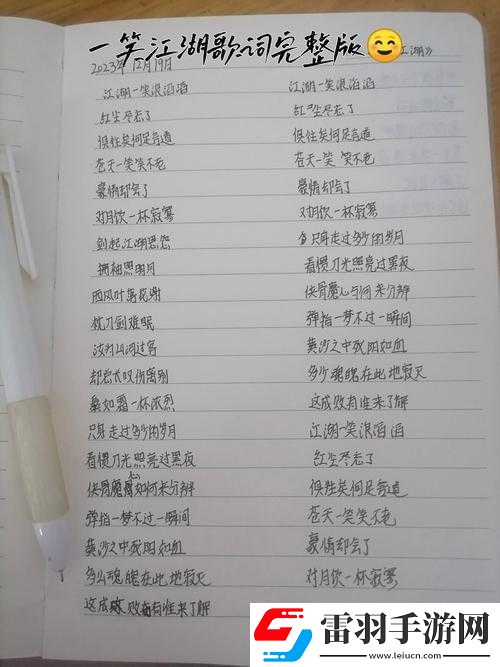 一笑江湖歌词完整版
江湖》
2023年12月19日
江湖一笑浪滔滔
红尘尽忘了
俱往矣何足言道
苍天一笑笑不老
豪情却会了
对月饮一杯寂寥
剑起江湖恩怨
拂袖照明月
西风叶落花谢
枕刀剑难眠
汝为山河过客
却总长叹伤离别
鬓如霜一杯浓烈
只身走过多少的岁月
看惯刀光照亮过黑夜
侠骨魔心如何来分辨
弹指一梦不过一瞬间
黄沙之中残阳如血
多少魂魄在此地寂灭
这成败有谁来了解
江湖一笑浪滔滔
红尘尽忘了
俱往矣何足言道
苍天一笑 笑不老
豪情却会了
对月饮一杯寂寥
只身走过多少的岁月
看惯刀光照亮过黑夜
侠骨魔心与何来分辨
弹指一梦不过一瞬间
黄沙之中残阳如血
多少魂魄在此地寂灭
这成败有谁来了解
江湖一笑浪滔滔
红尘尽忘了
俱往矣何足言道
苍天一笑笑不老
豪情却会了
对月饮一杯寂寥
雷羽手游网
www.leiucn.com